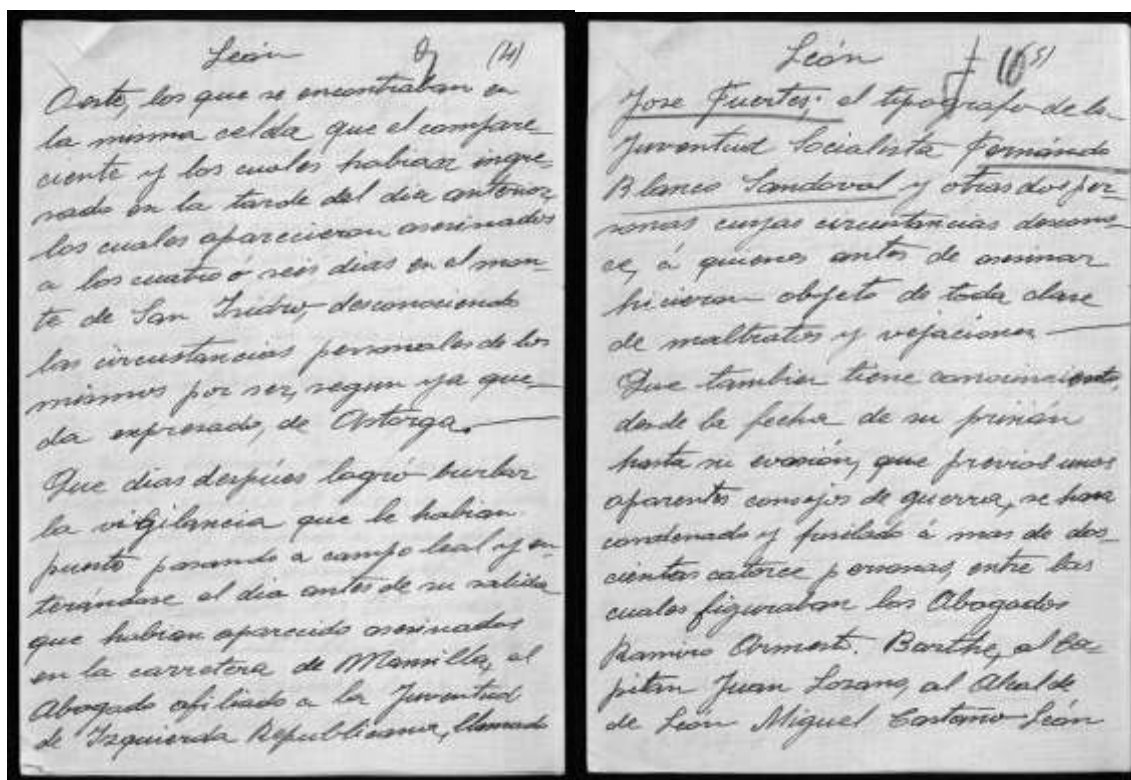 León (4)
Oeste, los que se encontraban en
la misma celda que el compare-
ciente y los cuales habian ingre-
sado en la tarde del dia anterior,
los cuales aparecieron asesinados
a los cuatro ó seis dias en el mon-
te de San Isidro, desconociendo
las circustancias personales de los
mismos por ser, segun ya que-
da expresado, de Astorga.
Que dias despúes logró burlar
la vigilancia que le habian
puesto pasando a campo leal y en-
terándose el dia antes de su salida
que habian aparecido asesinados
en la carretera de Mansilla, al
Abogado afiliado a la Juventud
de Izquierda Republicana, llamado
León (5)
Jose Fuertes; el tipografo de la
Juventud Socialista Fernándo
Blanco Sandoval y otras dos per-
sonas cuyas circustancias descono-
ce, á quienes antes de asesinar
hicieron objeto de toda clase
de maltratos y vejaciones
Que tambien tiene conocimiento,
desde la fecha de su prisión
hasta su evasión, que previos unos
aparentes consejos de guerra, se han
condenado y fusilado á mas de dos-
cientas catorce personas, entre las
cuales figuraban los Abogados
Ramiro Armesto. Barthe, al Ca-
pitan Juan Lozano, al Alcalde
de León Miguel Castaño León